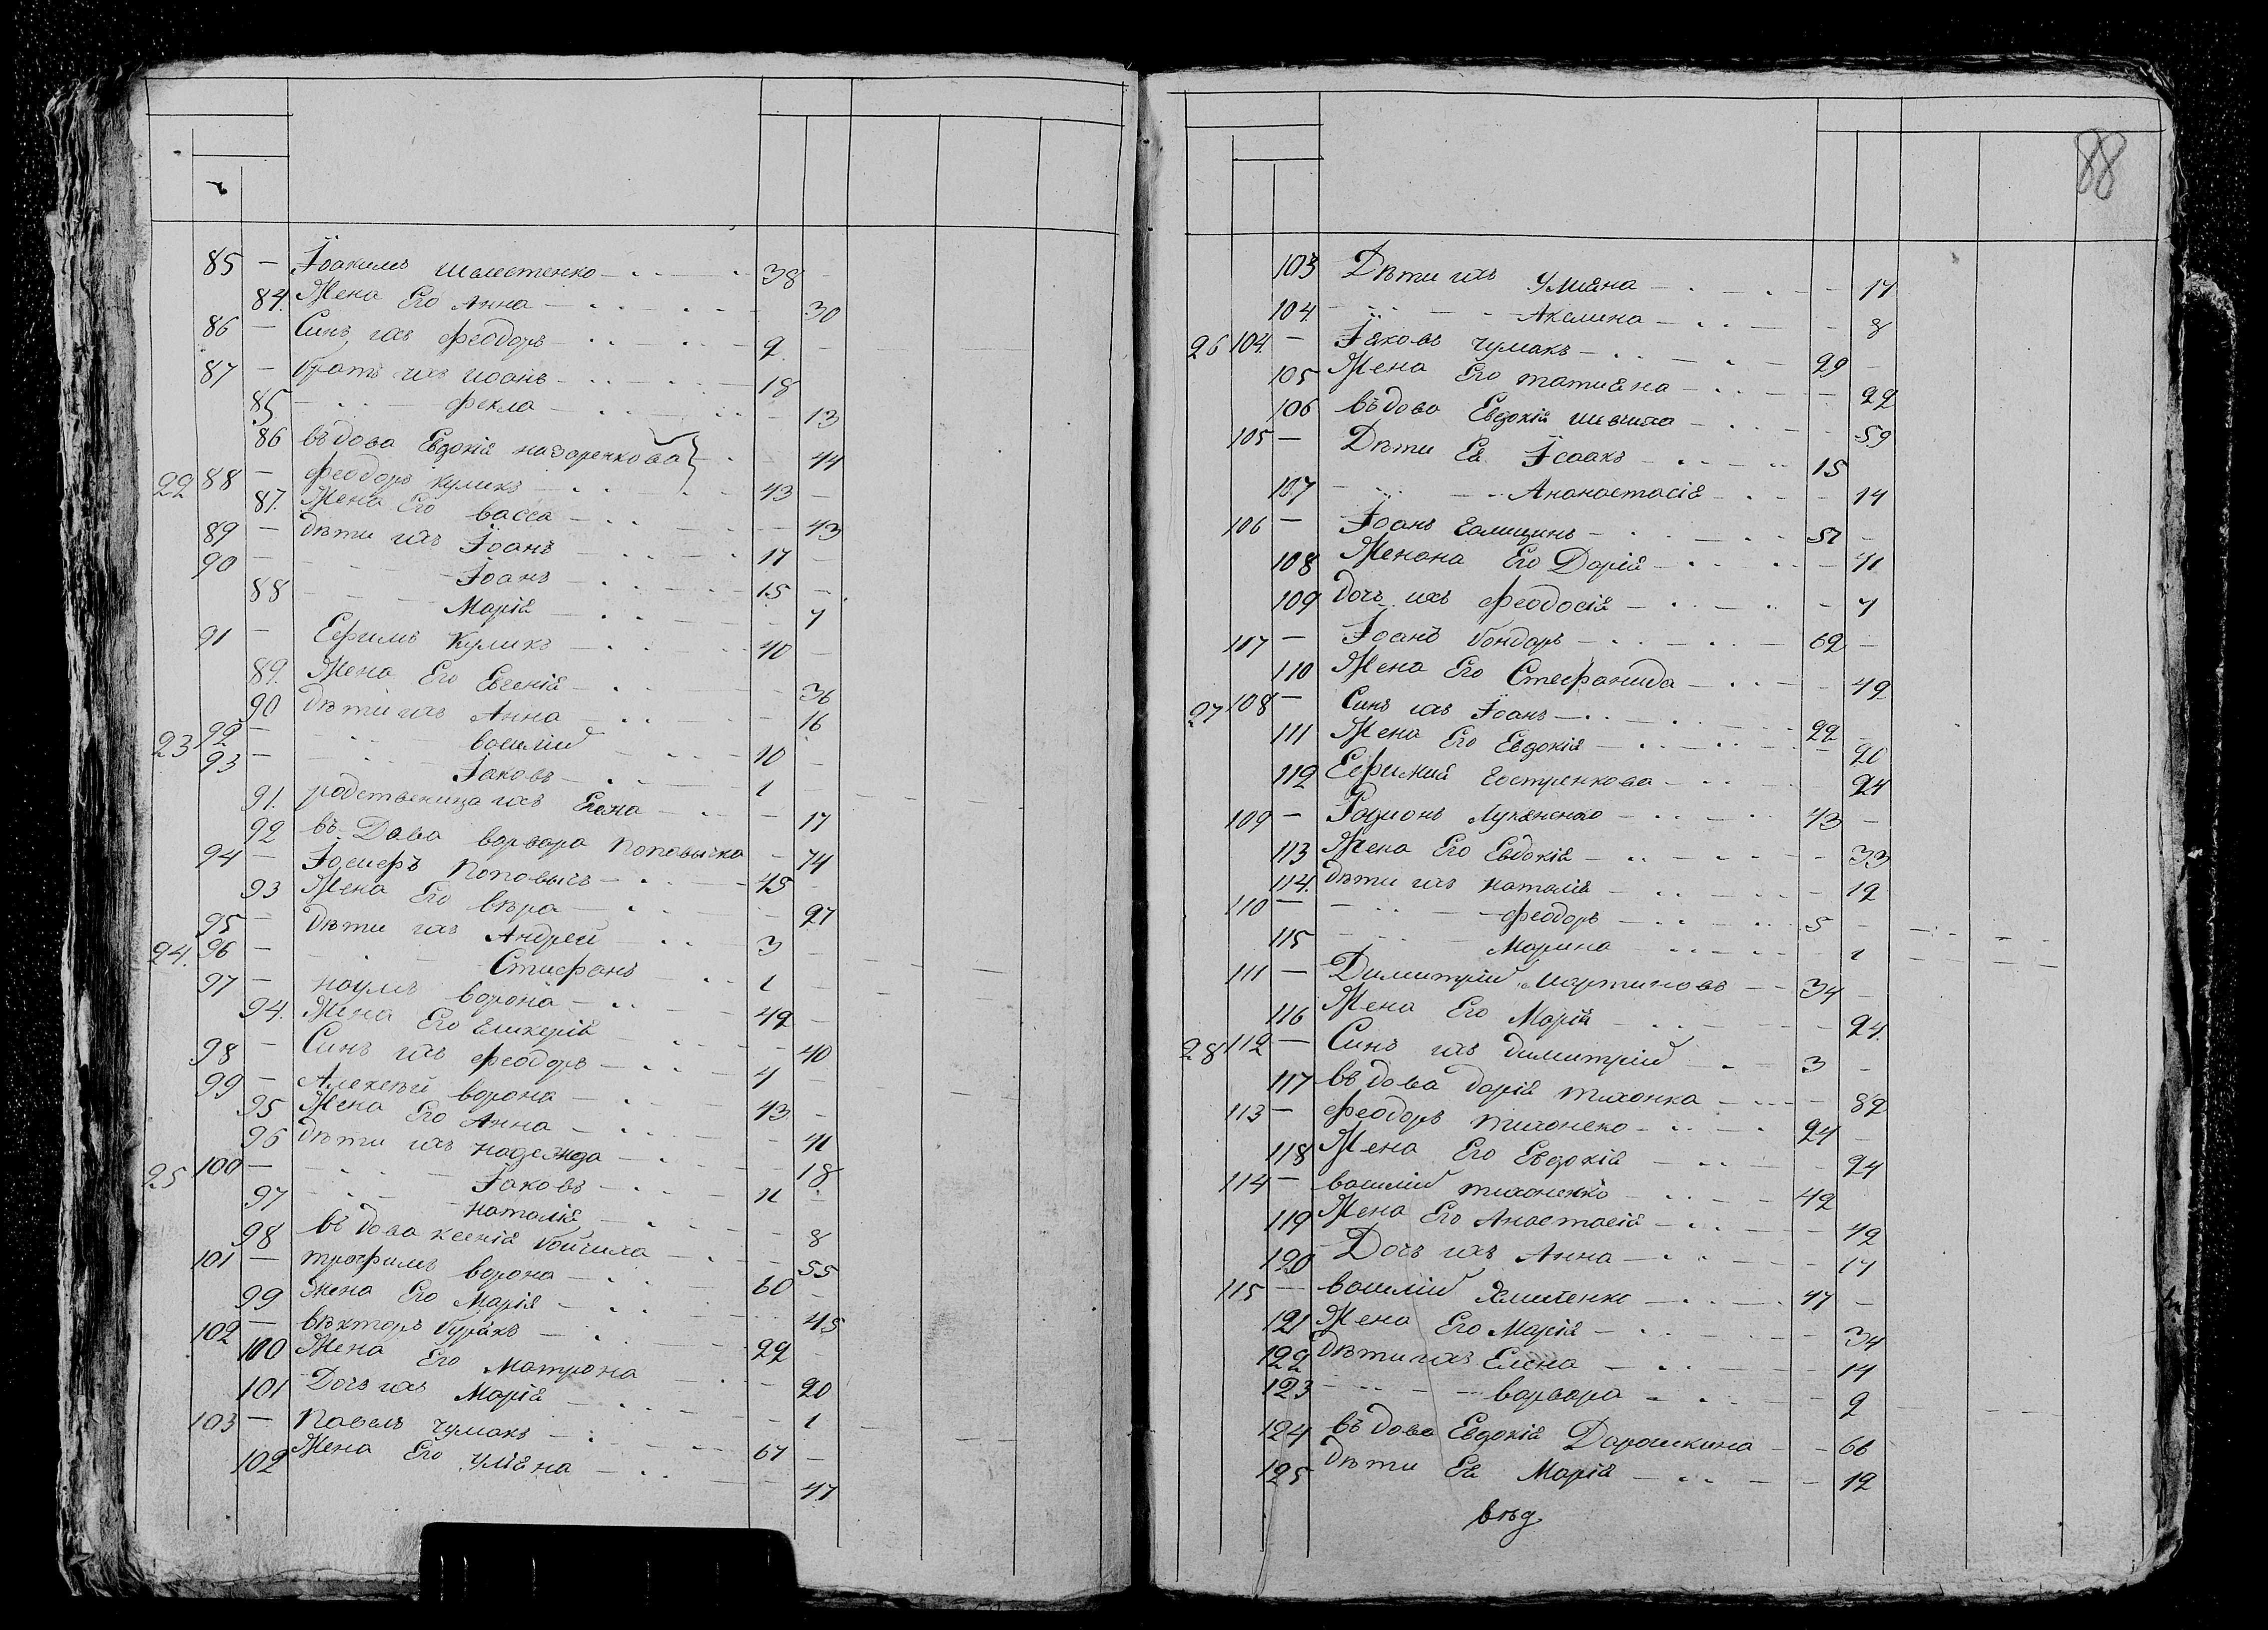 85 — Їоакимъ Шелестенко — 38 —
84. Жена Его Анна — 30
86 — Синъ ихъ Феодоръ — 9 —
87 — братъ ихъ иоанъ — 18
85 — Фекла — 13
86 въдова Евдокія назаренкова — 44
22 88 — Феодоръ куликъ — 43 —
87. Жена Его васса — 43
89 — дѣти ихъ Їоанъ — 17 —
90 — Їоанъ — 15 —
88 Марія — 7
91 — Ефимъ Куликъ — 40 —
89. Жена Его Евгенія — 36
90 дѣти ихъ Анна — 16
23 92 — василій — 10 —
93 — Їаковъ — 1
91. родственица ихъ Елена — 17
92 въ-Дова варвара Поповычка — 74
94 — Їосифъ Поповычъ — 45 —
93 Жена Его вѣра — 27
95 — дѣти ихъ Андрей — 3 —
24. 96 — Стефанъ — 1 —
97 — наумъ ворона — 42 —
94. Жена Его Гликерія — 40
98 — Синъ ихъ феодоръ — 4 —
99 — Алексѣй ворона — 43 —
95 Жена Его Анна — 41
96 дѣти ихъ надежда — 18
25 100 — Їаковъ — 11
97 наталія — 8
98 въдова ксенія бойчиха — 55
101 — трофимъ ворона — 60 —
99 Жена Его Марія — 45
102 — вѣкторъ буракъ — 22 —
100 Жена Его Матрона — 20
101 Дочъ ихъ Марія — 1
103 — Павелъ чумакъ — 67 —
102 Жена Его Улїяна — 47
88
103 Дѣти ихъ Улияна — 17
104 — Акелина — 8
26 104. — Їаковъ чумакъ — 29 —
105 Жена Его татияна — 22
106 въдова Евдокія шевчиха — 59
105 — Дѣти Ея Їсаакъ — 15
107 — Ананастасія — 14
106 — Їоанъ Галицинъ — 51 —
108 Женана Его Дарія — 41
109 дочъ ихъ феодосія — 7
107 — Їоанъ бондаръ — 62 —
110 Жена Его Стефанида — 49
27 108 — Синъ ихъ Їоанъ — 22 —
111 Жена Его Евдокія — 20
112 Ефимия Костренкова — 24
109 — Родионъ Лучяненко — 43 —
113 Жена Его Евдокія — 33
114. дѣти ихъ наталія — 12
110 — феодоръ — 5 —
115 Марина — 1
111 — Димитрій мартиновъ — 34 —
116 Жена Его Марія — 24.
28 112 — Синъ ихъ димитрій — 3 —
117 въдова дарія тихонка — 82
113 — феодоръ тихонеко — 24 —
118 Жена Его Евдокія — 24
114 — василій тихоненко — 42
119 Жена Его Анастасія — 42
120 Дочъ ихъ Анна — 17
115 — василій Хмиленко — 47 —
121 Жена Его Марія — 34
122 дѣти ихъ Елена — 14
123 варвара — 9
124 въдова Евдокія Дарошкина — 66
125 дѣти Ея Марія — 12
вѣд